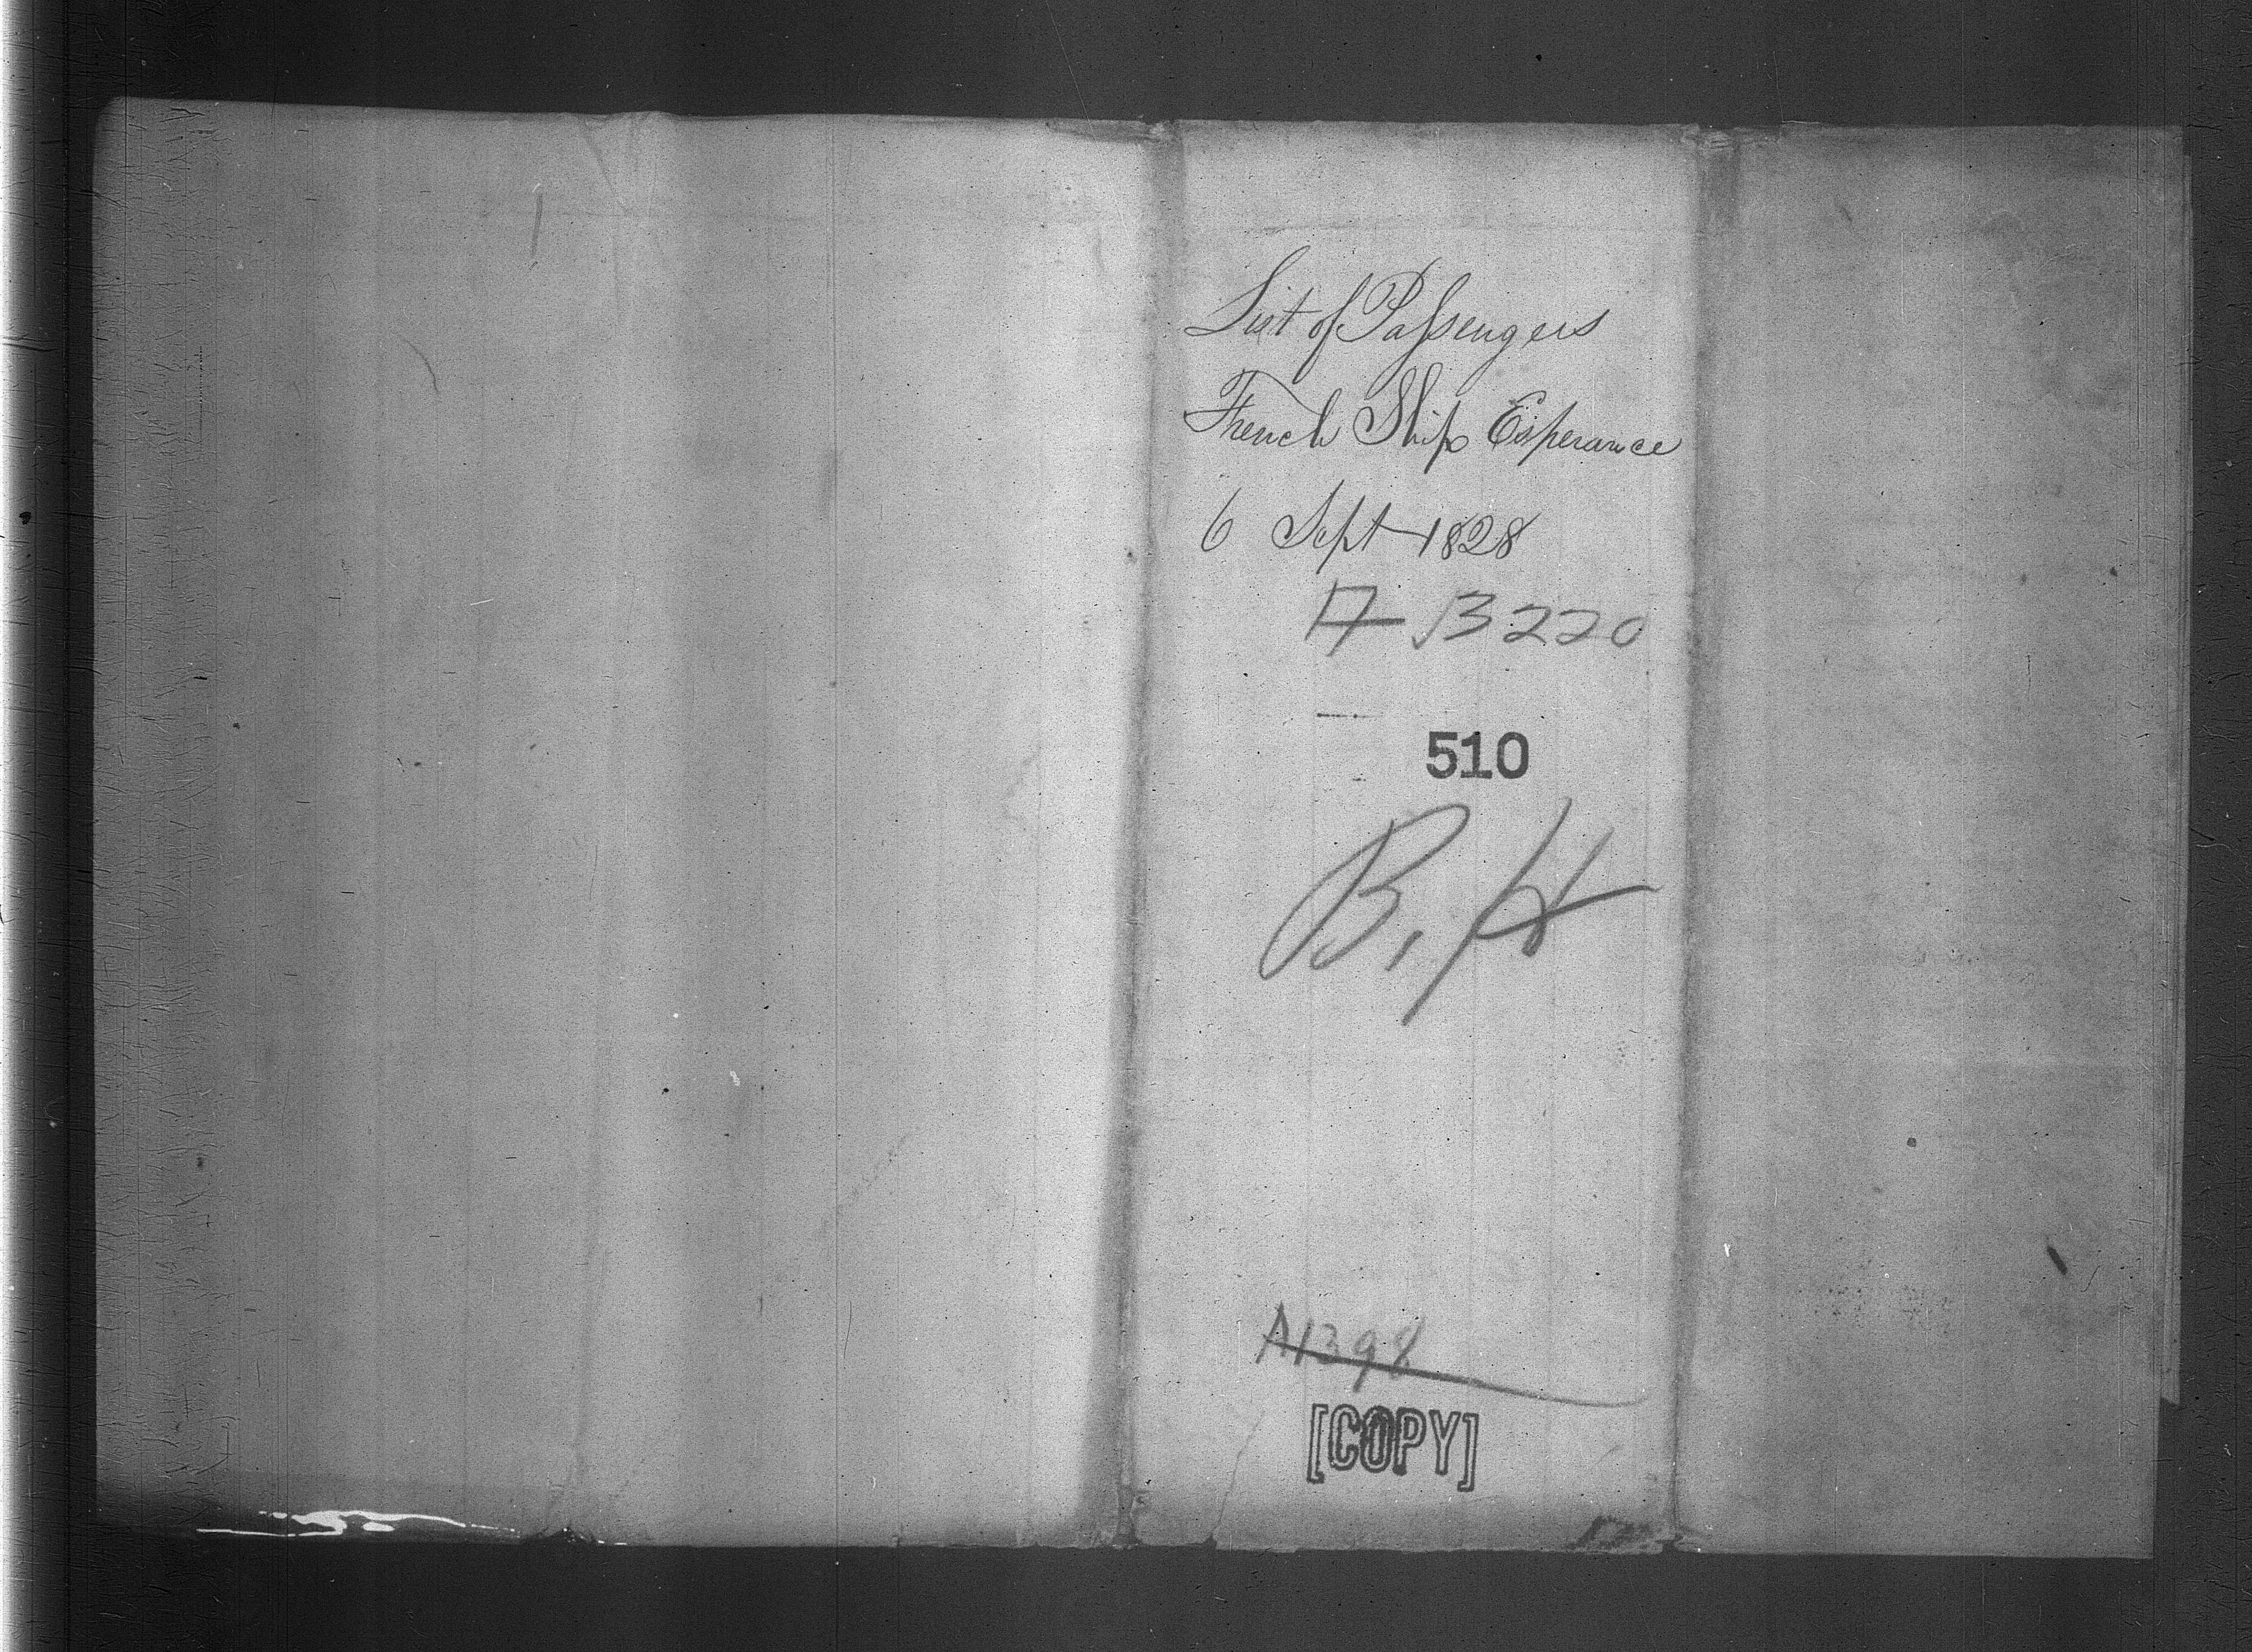 List of Passengers
French Ship Esperance
6 Sept 1828
17 B 220
510
B, H
A1398
[COPY]